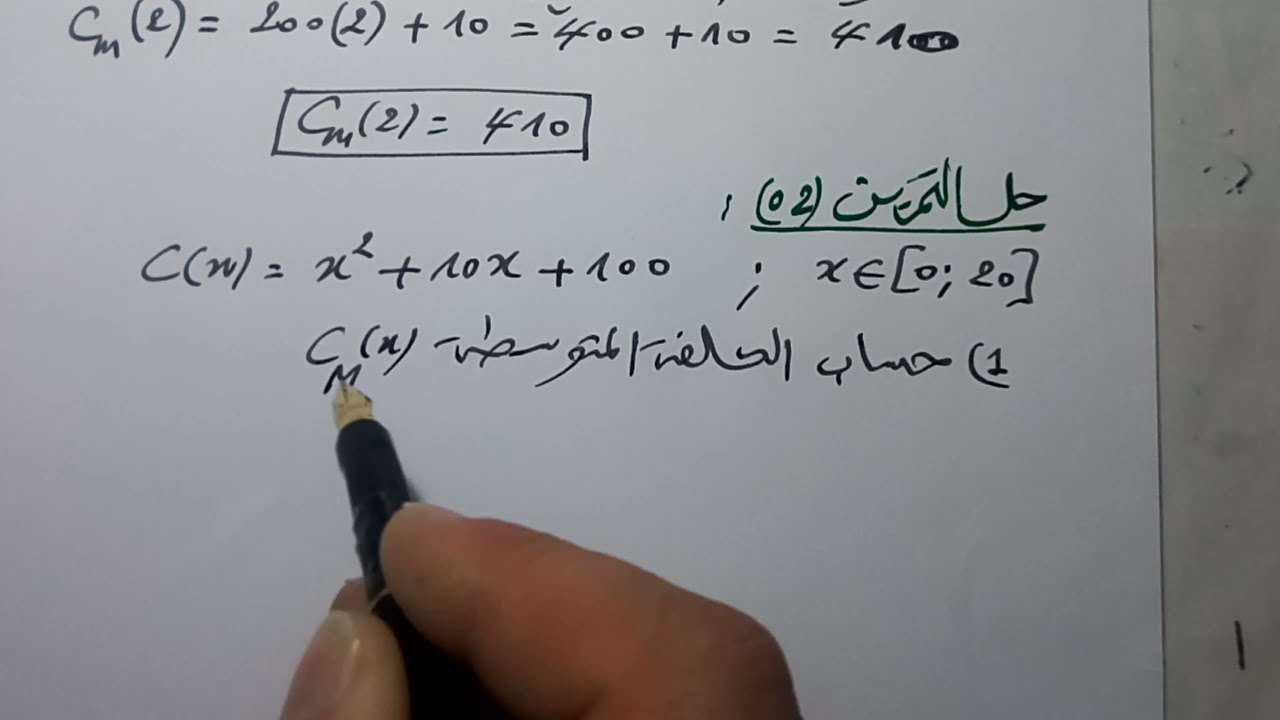 Cm(2) = 200(2) + 10 = 400 + 10 = 410
Cm(2) = 410
حل التمرين (02) :
C(x) = x² + 10x + 100 ; x ∈ [0; 20]
1) حساب الكلفة المتوسطة C_M(x)